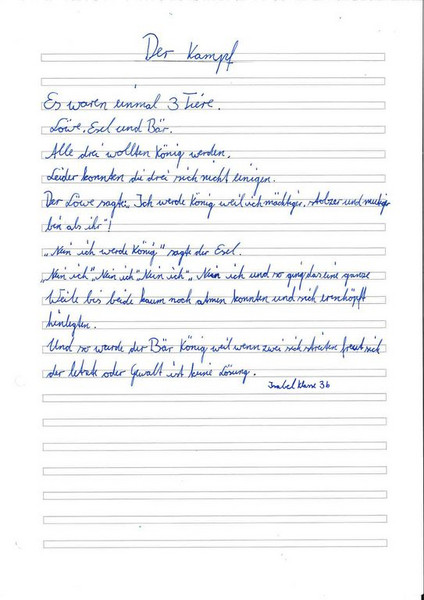 Der Kampf
Es waren einmal 3 Tiere.
Löwe, Esel und Bär.
Alle drei wollten König werden.
Leider konnten die drei sich nicht einigen.
Der Löwe sagte: „Ich werde König weil ich mächtiger, stolzer und mutiger
bin als ihr"!
„Nein ich werde König" sagte der Esel.
„Nein ich" „Nein ich" „Nein ich" „Nein ich und so ging das eine ganze
Weile bis beide kaum noch atmen konnten und sich erschöpft
hinlegten.
Und so wurde der Bär König weil wenn zwei sich streiten freut sich
der letzte oder Gewalt ist keine Lösung.
Isabel Klasse 3b